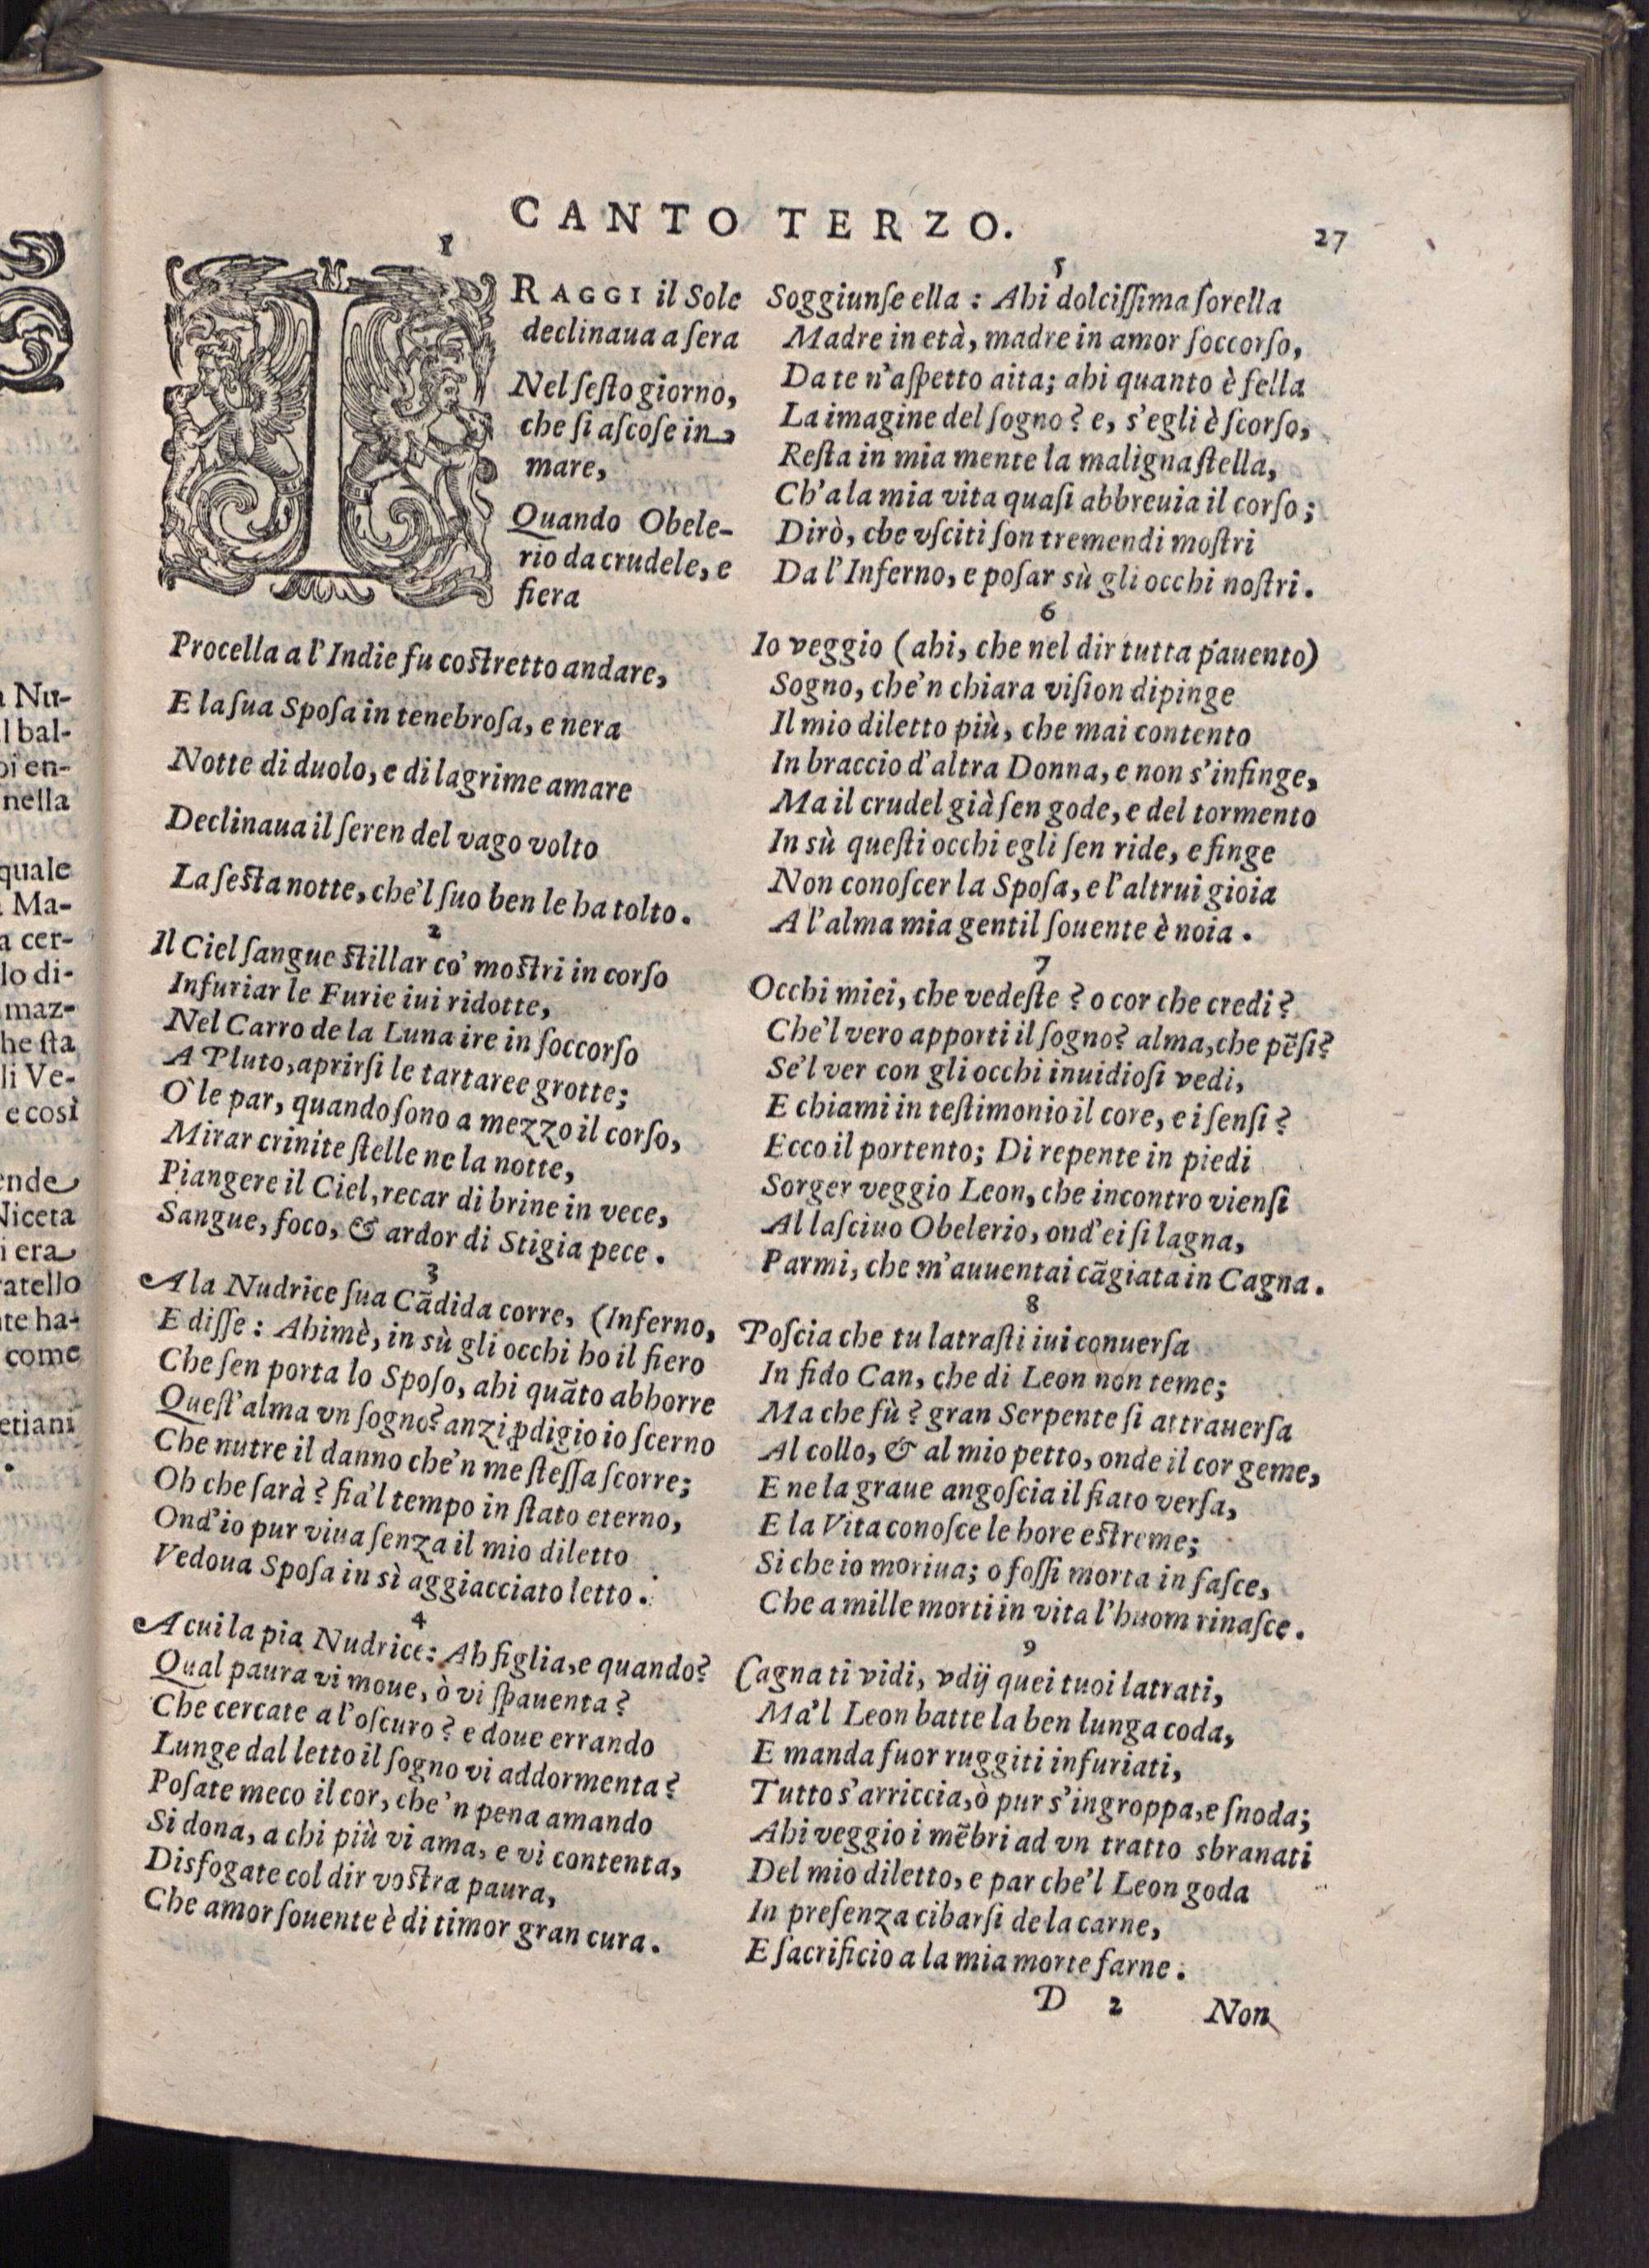 CANTO TERZO.
27
1
I RAGGI il Sole
declinaua a ſera
Nel ſeſto giorno,
che ſi aſcoſe in
mare,
Quando Obele-
rio da crudele, e
fiera
Procella a l'Indie fu coſtretto andare,
E la ſua Spoſa in tenebroſa, e nera
Notte di duolo, e di lagrime amare
Declinaua il ſeren del vago volto
La ſeſta notte, che'l ſuo ben le ha tolto.
2
Il Ciel ſangue ſtillar co' moſtri in corſo
Infuriar le Furie iui ridotte,
Nel Carro de la Luna ire in ſoccorſo
A Pluto, aprirſi le tartaree grotte;
O' le par, quando ſono a mezzo il corſo,
Mirar crinite ſtelle ne la notte,
Piangere il Ciel, recar di brine in vece,
Sangue, foco, & ardor di Stigia pece.
3
A la Nudrice ſua Cãdida corre, (Inferno,
E diſſe: Ahimè, in sù gli occhi ho il fiero
Che ſen porta lo Spoſo, ahi quãto abhorre
Queſt'alma vn ſogno? anzi ꝓdigio io ſcerno
Che nutre il danno che'n me ſteſſa ſcorre;
Oh che ſarà? ſia'l tempo in ſtato eterno,
Ond'io pur viua ſenza il mio diletto
Vedoua Spoſa in sì aggiacciato letto.
4
A cui la pia Nudrice: Ah figlia, e quando?
Qual paura vi moue, ò vi ſpauenta?
Che cercate a l'oſcuro? e doue errando
Lunge dal letto il ſogno vi addormenta?
Poſate meco il cor, che'n pena amando
Si dona, a chi più vi ama, e vi contenta,
Disfogate col dir voſtra paura,
Che amor ſouente è di timor gran cura.
5
Soggiunſe ella: Ahi dolciſſima ſorella
Madre in età, madre in amor ſoccorſo,
Da te n'aſpetto aita; ahi quanto è fella
La imagine del ſogno? e, s'egli è ſcorſo,
Reſta in mia mente la maligna ſtella,
Ch'a la mia vita quaſi abbreuia il corſo;
Dirò, che vſciti ſon tremendi moſtri
Da l'Inferno, e poſar sù gli occhi noſtri.
6
Io veggio (ahi, che nel dir tutta pauento)
Sogno, che'n chiara viſion dipinge
Il mio diletto più, che mai contento
In braccio d'altra Donna, e non s'infinge,
Ma il crudel già ſen gode, e del tormento
In sù queſti occhi egli ſen ride, e finge
Non conoſcer la Spoſa, e l'altrui gioia
A l'alma mia gentil ſouente è noia.
7
Occhi miei, che vedeſte? o cor che credi?
Che'l vero apporti il ſogno? alma, che pẽſi?
Se'l ver con gli occhi inuidioſi vedi,
E chiami in teſtimonio il core, e i ſenſi?
Ecco il portento; Di repente in piedi
Sorger veggio Leon, che incontro vienſi
Al laſciuo Obelerio, ond'ei ſi lagna,
Parmi, che m'auuentai cãgiata in Cagna.
8
Poſcia che tu latraſti iui conuerſa
In fido Can, che di Leon non teme;
Ma che fù? gran Serpente ſi attrauerſa
Al collo, & al mio petto, onde il cor geme,
E ne la graue angoſcia il fiato verſa,
E la Vita conoſce le hore eſtreme;
Si che io moriua; o foſſi morta in faſce,
Che a mille morti in vita l'huom rinaſce.
9
Cagna ti vidi, vdij quei tuoi latrati,
Ma'l Leon batte la ben lunga coda,
E manda fuor ruggiti infuriati,
Tutto s'arriccia, ò pur s'ingroppa, e ſnoda;
Ahi veggio i mẽbri ad vn tratto sbranati
Del mio diletto, e par che'l Leon goda
In preſenza cibarſi de la carne,
E ſacrificio a la mia morte farne.
D 2 Non